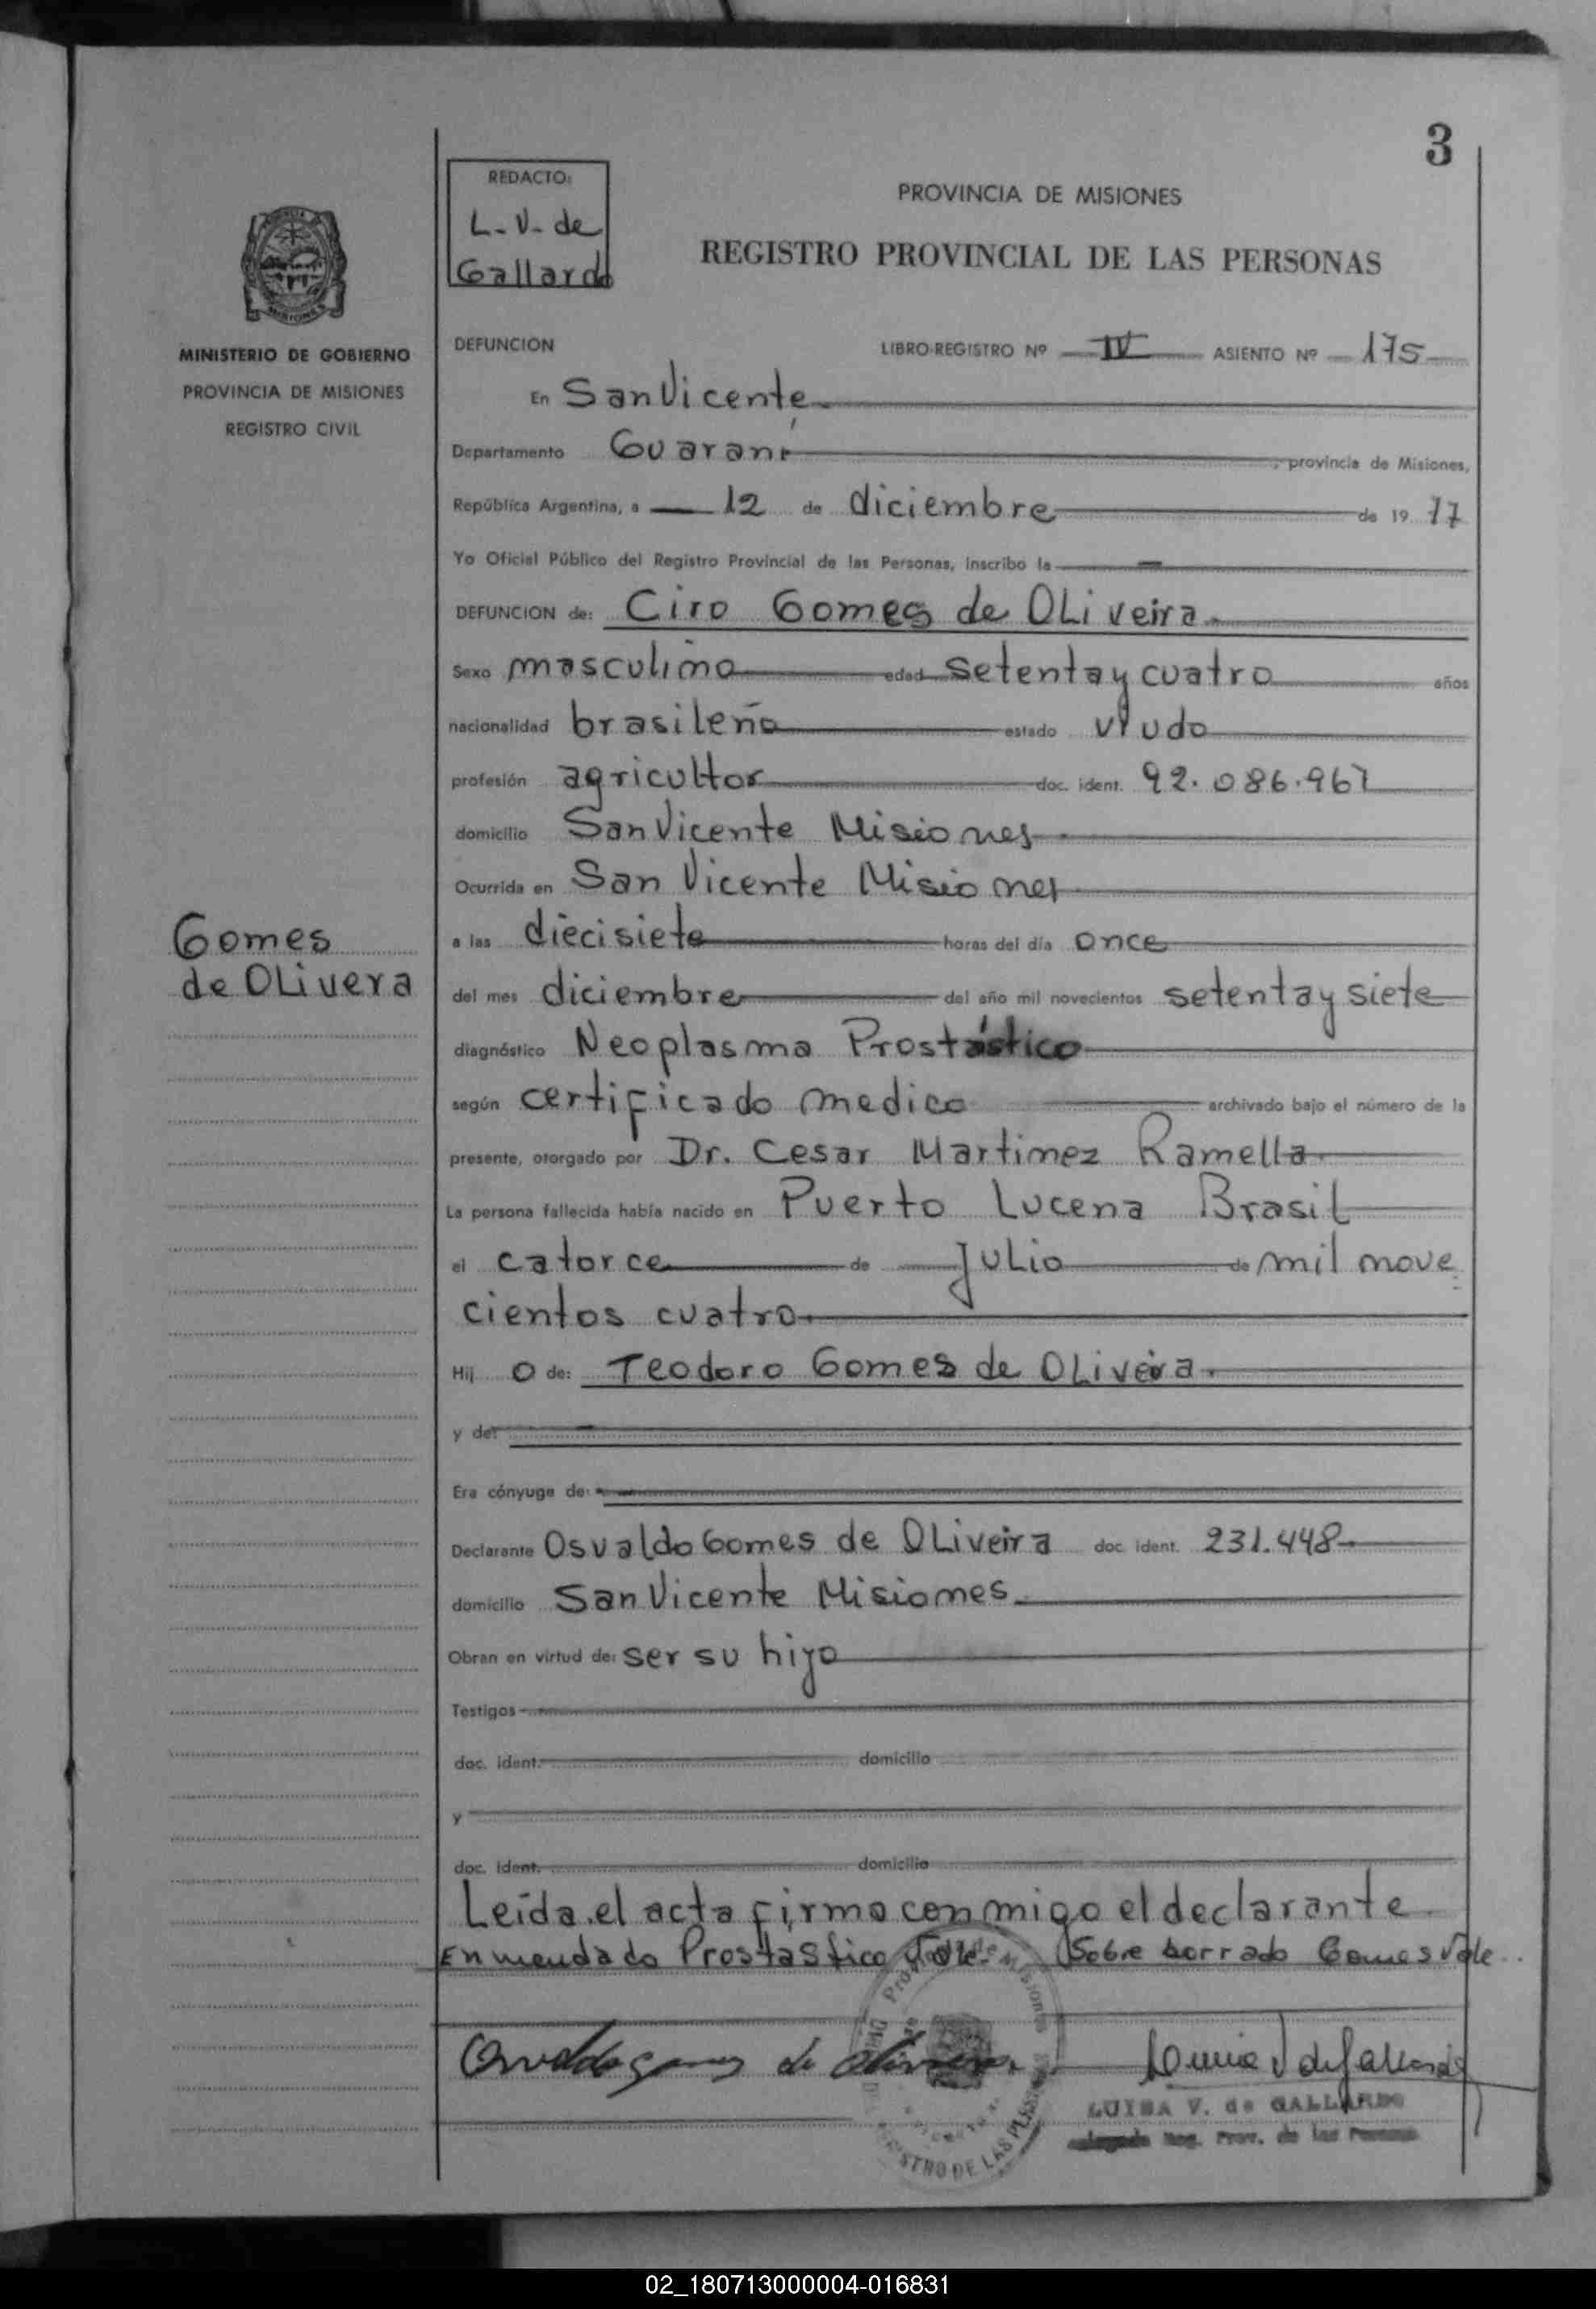 3
REDACTO:
L.V. de
Gallardo
PROVINCIA DE MISIONES
REGISTRO PROVINCIAL DE LAS PERSONAS
MINISTERIO DE GOBIERNO
PROVINCIA DE MISIONES
REGISTRO CIVIL
DEFUNCION LIBRO-REGISTRO Nº IV ASIENTO Nº 175
En San Vicente
Departamento Guaraní, provincia de Misiones,
República Argentina, a 12 de diciembre de 19 77
Yo Oficial Público del Registro Provincial de las Personas, inscribo la
DEFUNCION de: Ciro Gomes de OLiveira
Sexo masculino edad setenta y cuatro años
nacionalidad brasileño estado viudo
profesión agricultor doc. ident. 92.086.967
domicilio San Vicente Misiones
Ocurrida en San Vicente Misiones
Gomes
de OLivera
a las diecisiete horas del día once
del mes diciembre del año mil novecientos setenta y siete
diagnóstico Neoplasma Prostástico
según certificado medico archivado bajo el número de la
presente, otorgado por Dr. Cesar Martinez Ramella
La persona fallecida había nacido en Puerto Lucena Brasil
el catorce de Julio de mil nove
cientos cuatro
Hij o de: Teodoro Gomes de OLiveira
y de:
Era cónyuge de:
Declarante Osvaldo Gomes de OLiveira doc. ident. 231.448
domicilio San Vicente Misiones
Obran en virtud de: ser su hijo
Testigos
doc. ident. domicilio
y
doc. ident. domicilio
Leída el acta firma conmigo el declarante
Enmendado Prostastico Vale. Sobre borrado Gomes Vale
Osvaldo gomes de oliveira
LUISA V. de GALLARDO
Reg. Prov. de las Personas
REGISTRO DE LAS PERSONAS
02_180713000004-016831